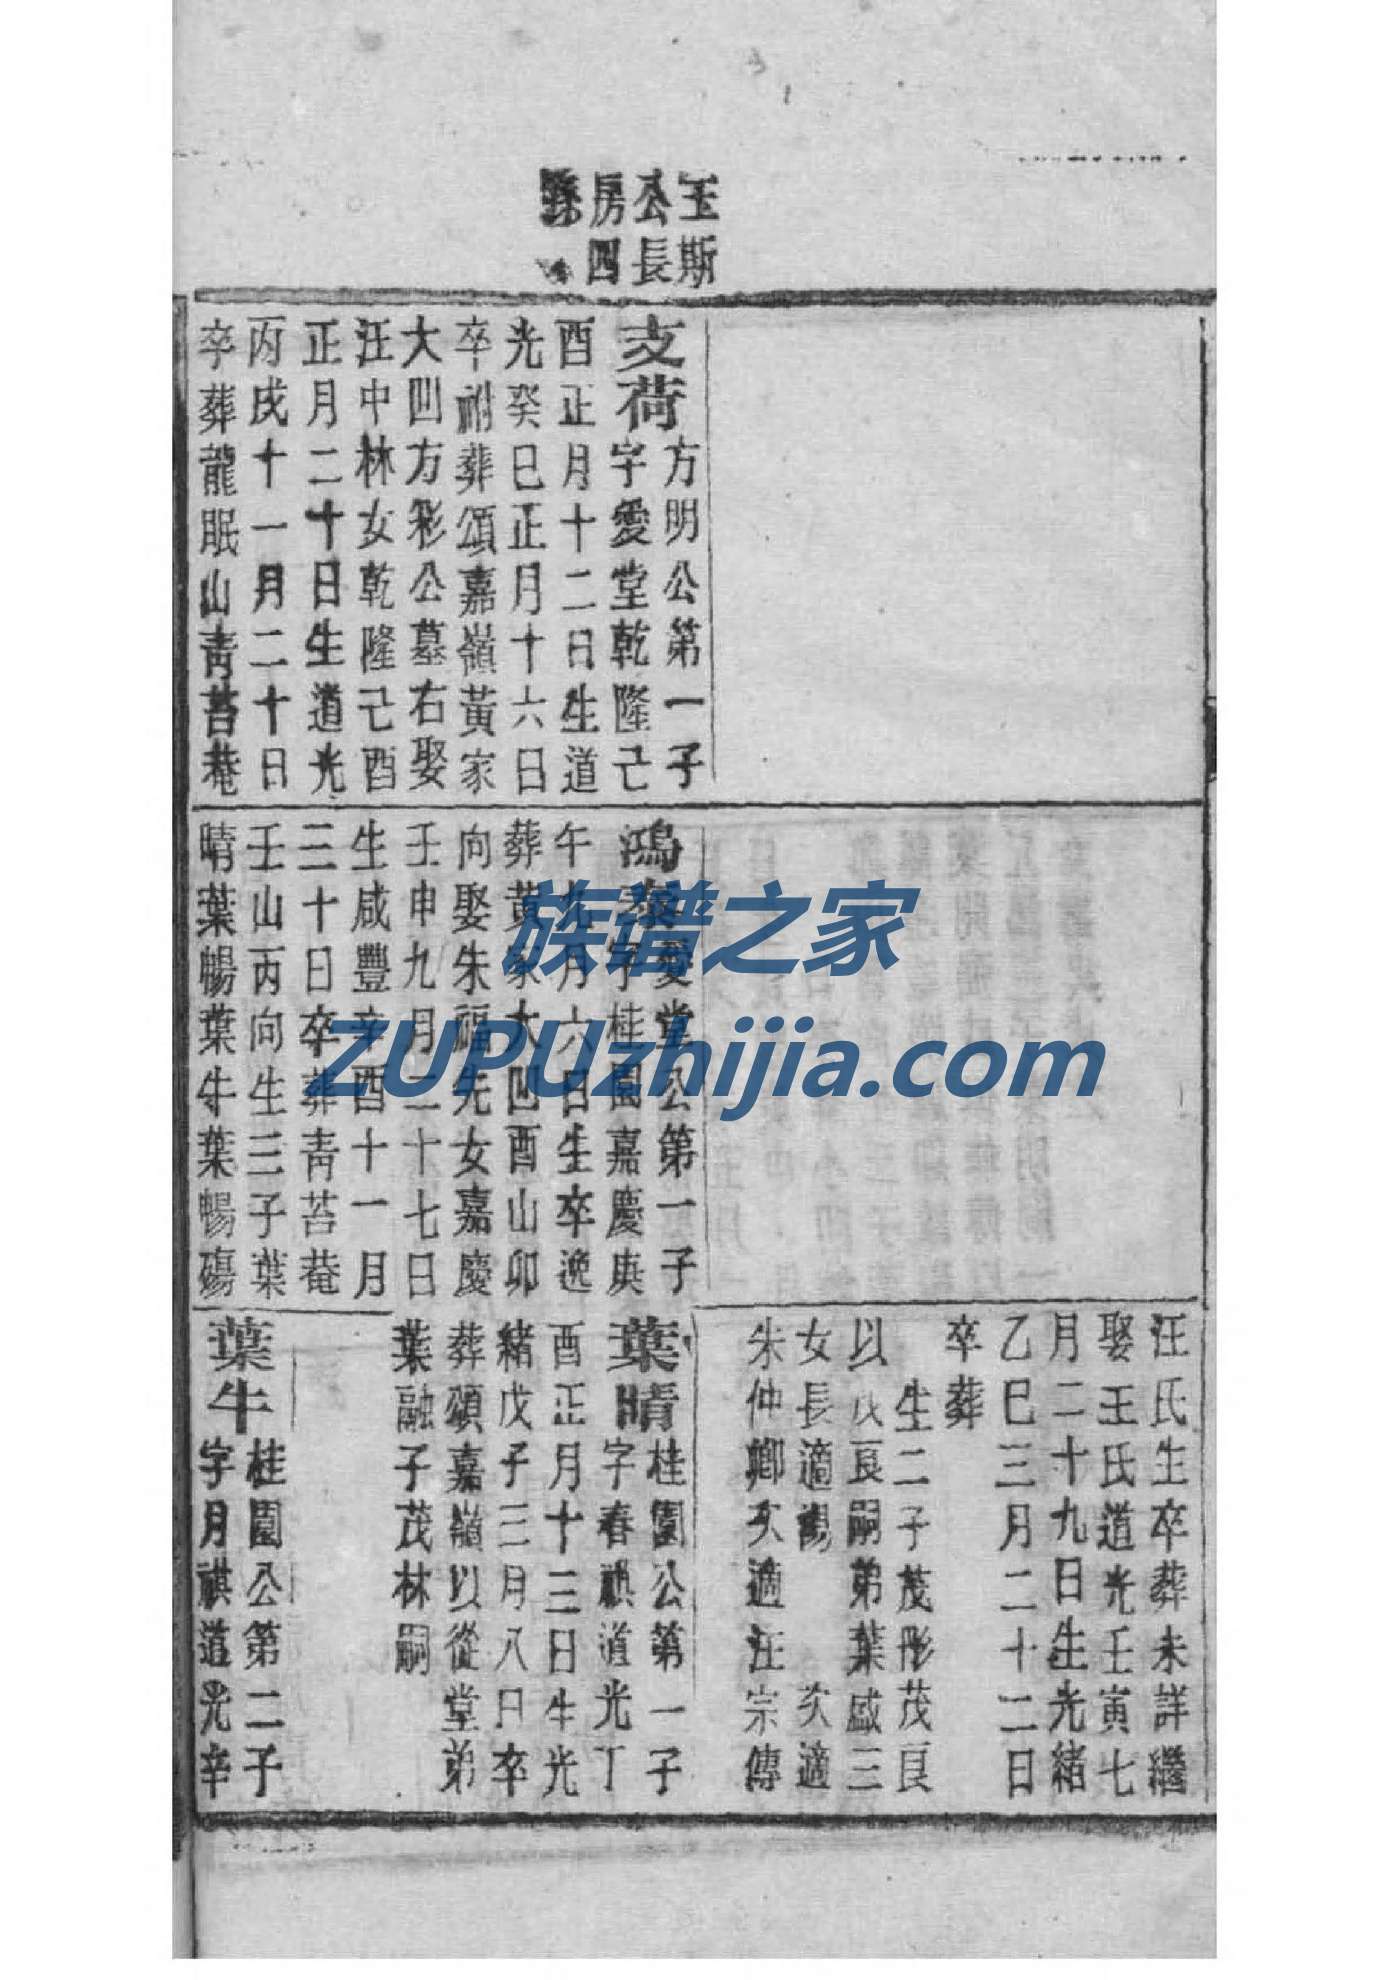 玉斯
公長
房四
支荷
方明公第一子
字愛堂乾隆己
酉正月十二日生道
光癸巳正月十六日
卒祔葬頌嘉嶺黃家
大凹方彩公墓右娶
汪中林女乾隆己酉
正月二十日生道光
丙戌十一月二十日
卒葬龍眠山靑苔菴
鴻泰
愛堂公第一子
字桂園嘉慶庚
午九月六日生卒逸
葬黃家大凹酉山卯
向娶朱福先女嘉慶
壬申九月二十七日
生咸豐辛酉十一月
三十日卒葬靑苔菴
壬山丙向生三子葉
晴葉暢葉牛葉暢殤
汪氏生卒葬未詳繼
娶王氏道光壬寅七
月二十九日生光緒
乙巳三月二十二日
卒葬
生二子茂彤茂良
以茂良嗣弟葉盛三
女長適楊 次適
朱仲卿次適汪宗傳
葉晴
桂園公第一子
字春祺道光丁
酉正月十三日生光
緒戊子三月八日卒
葬頌嘉嶺以從堂弟
葉融子茂林嗣
葉牛
桂園公第二子
字月祺道光辛
族谱之家
ZUPUzhijia.com